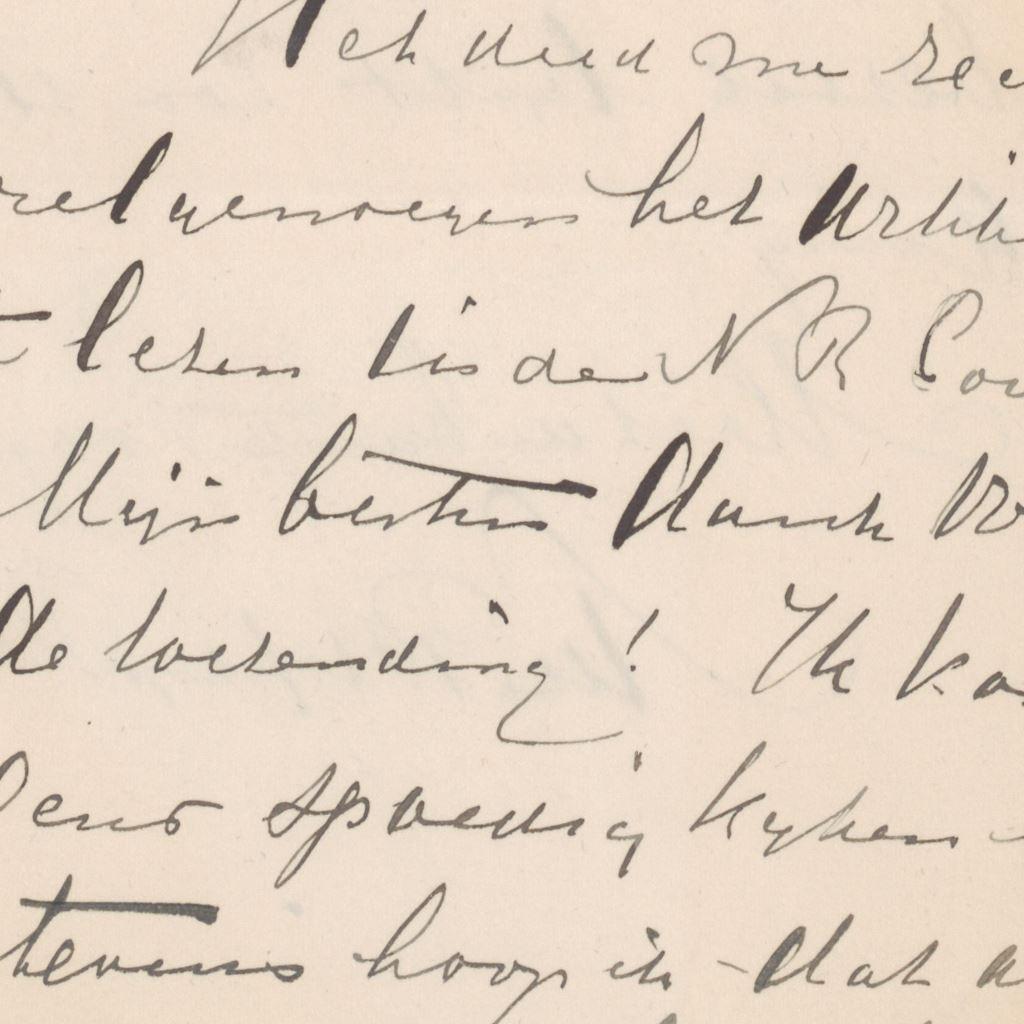 Het deed me
veel genoegen het
lezen in de N R Cou
Mijn besten dank vo
de toezending! Ik ko
eens spoedig kyken
tevens hoop ik - dat